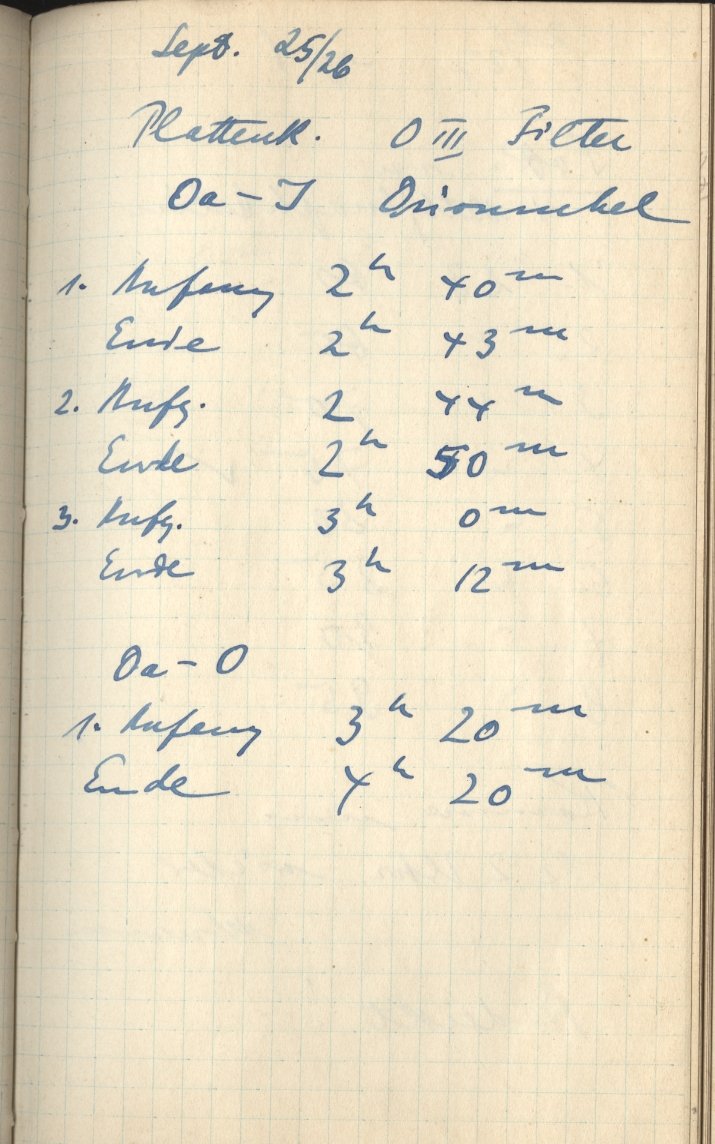 Sept. 25/26
Plattenk. O III Filter
Oa-J Orionnebel
1. Anfang 2h 40m
Ende 2h 43m
2. Anfg. 2 44m
Ende 2h 50m
3. Anfg. 3h 0m
Ende 3h 12m
Oa-O
1. Anfang 3h 20m
Ende 4h 20m